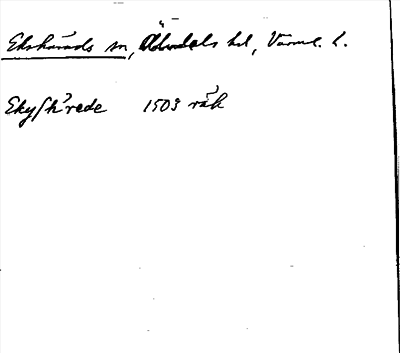 Ekshärads sn, Älvdals hd, Värml. l.
Ekysh'rede 1503 räk